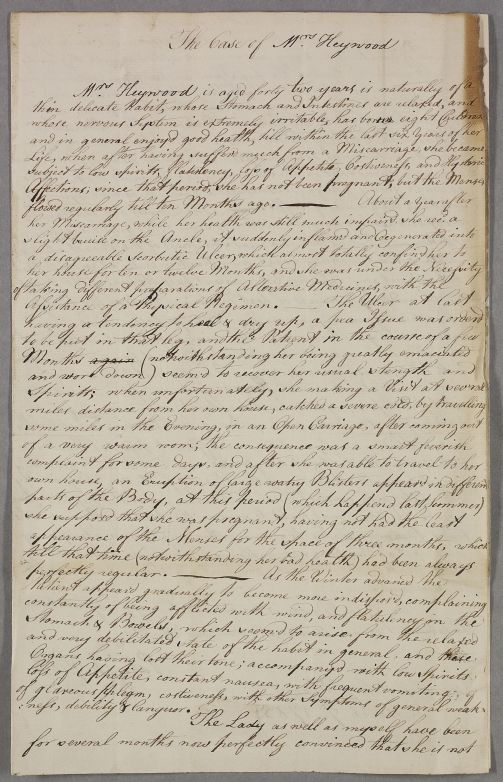 The Case of Mrs Heywood
Mrs Heywood is aged forty two years is naturally of a
thin delicate Habit, whose Stomach and Intestines are relaxed, and
whose nervous System is extremely irritable, has borne eight Children
and in general enjoy'd good health, till within the last six years of her
Life, when after having suffer'd much from a Miscarriage, she became
subject to low Spirits, flatulency, loss of Appetite, Costiveness, and Hysteric
Affections; since that period, she has not been pregnant, but the Menses
flowed regularly till ten Months ago. — About a year after
her Miscarriage, while her health was still much impaired, she rec'd a
slight bruise on the Ancle, it suddenly inflam'd and degenerated into
a disagreeable Scorbutic Ulcer, which almost totally confin'd her to
her house for ten or twelve Months, and she was under the Necessity
of taking different preparations of Alterative Medicines, with the
Assistance of a Physical Regimen. — The Ulcer at last
having a tendency to heal & dry up, a pea Issue was order'd
to be put in that leg, and the Patient in the course of a few
Months again (notwithstanding her being greatly emaciated
and worn down) seem'd to recover her usual strength and
Spirits; when unfortunately, she making a Visit at several
miles distance from her own house, catched a severe cold, by travelling
some miles in the Evening, in an Open Carriage, after coming out
of a very warm room; the consequence was a smart feverish
complaint for some days, and after she was able to travel to her
own house, an Eruption of large watry Blisters appear'd in different
parts of the Body, at this period (which happend last summer)
she supposed that she was pregnant, having not had the least
appearance of the Menses for the space of three months, which
till that time (notwithstanding her bad health) had been always
perfectly regular. — As the Winter advanced the
Patient appear'd gradually to become more indispos'd, complaining
constantly of being afflicted with wind, and flatulency on the
Stomach & Bowels, which seem'd to arise, from the relaxed
and very debilitated state of the habit in general, and these
Organs having lost their tone; accompany'd with low Spirits,
loss of Appetite, constant nausea, with frequent vomiting
of glareous phlegm, costiveness, with other Symptoms of general weak-
:ness, debility & languor.
The Lady as well as myself have been
for several months now perfectly convinced that she is not